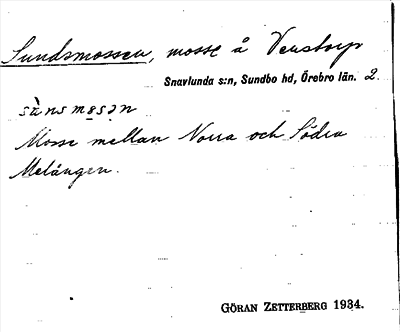 Sundsmossen, mosse å Venstorp
Snavlunda s:n, Sundbo hd, Örebro län. 2.
sùnsmøsən
Mosse mellan Norra och Södra
Melången.
GÖRAN ZETTERBERG 1934.